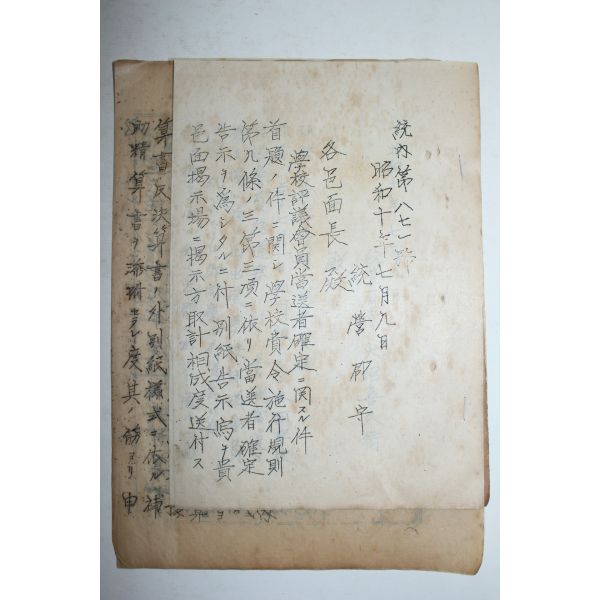 統内第八七一號
昭和十年七月九日
統營郡守
各邑面長殿
學校評議會員當選者確定ニ関スル件
首題ノ件ニ関シ學校費令施行規則
第九條ノ三第三項ニ依リ當選者確定
告示ヲ為シタルニ付別紙告示寫ヲ貴
邑面揭示場ニ揭示方取計相成度送付ス
算書及決算書ノ外別紙様式ニ依ル補
助精算書ヲ添附セラレ度其ノ筋ヨリ申